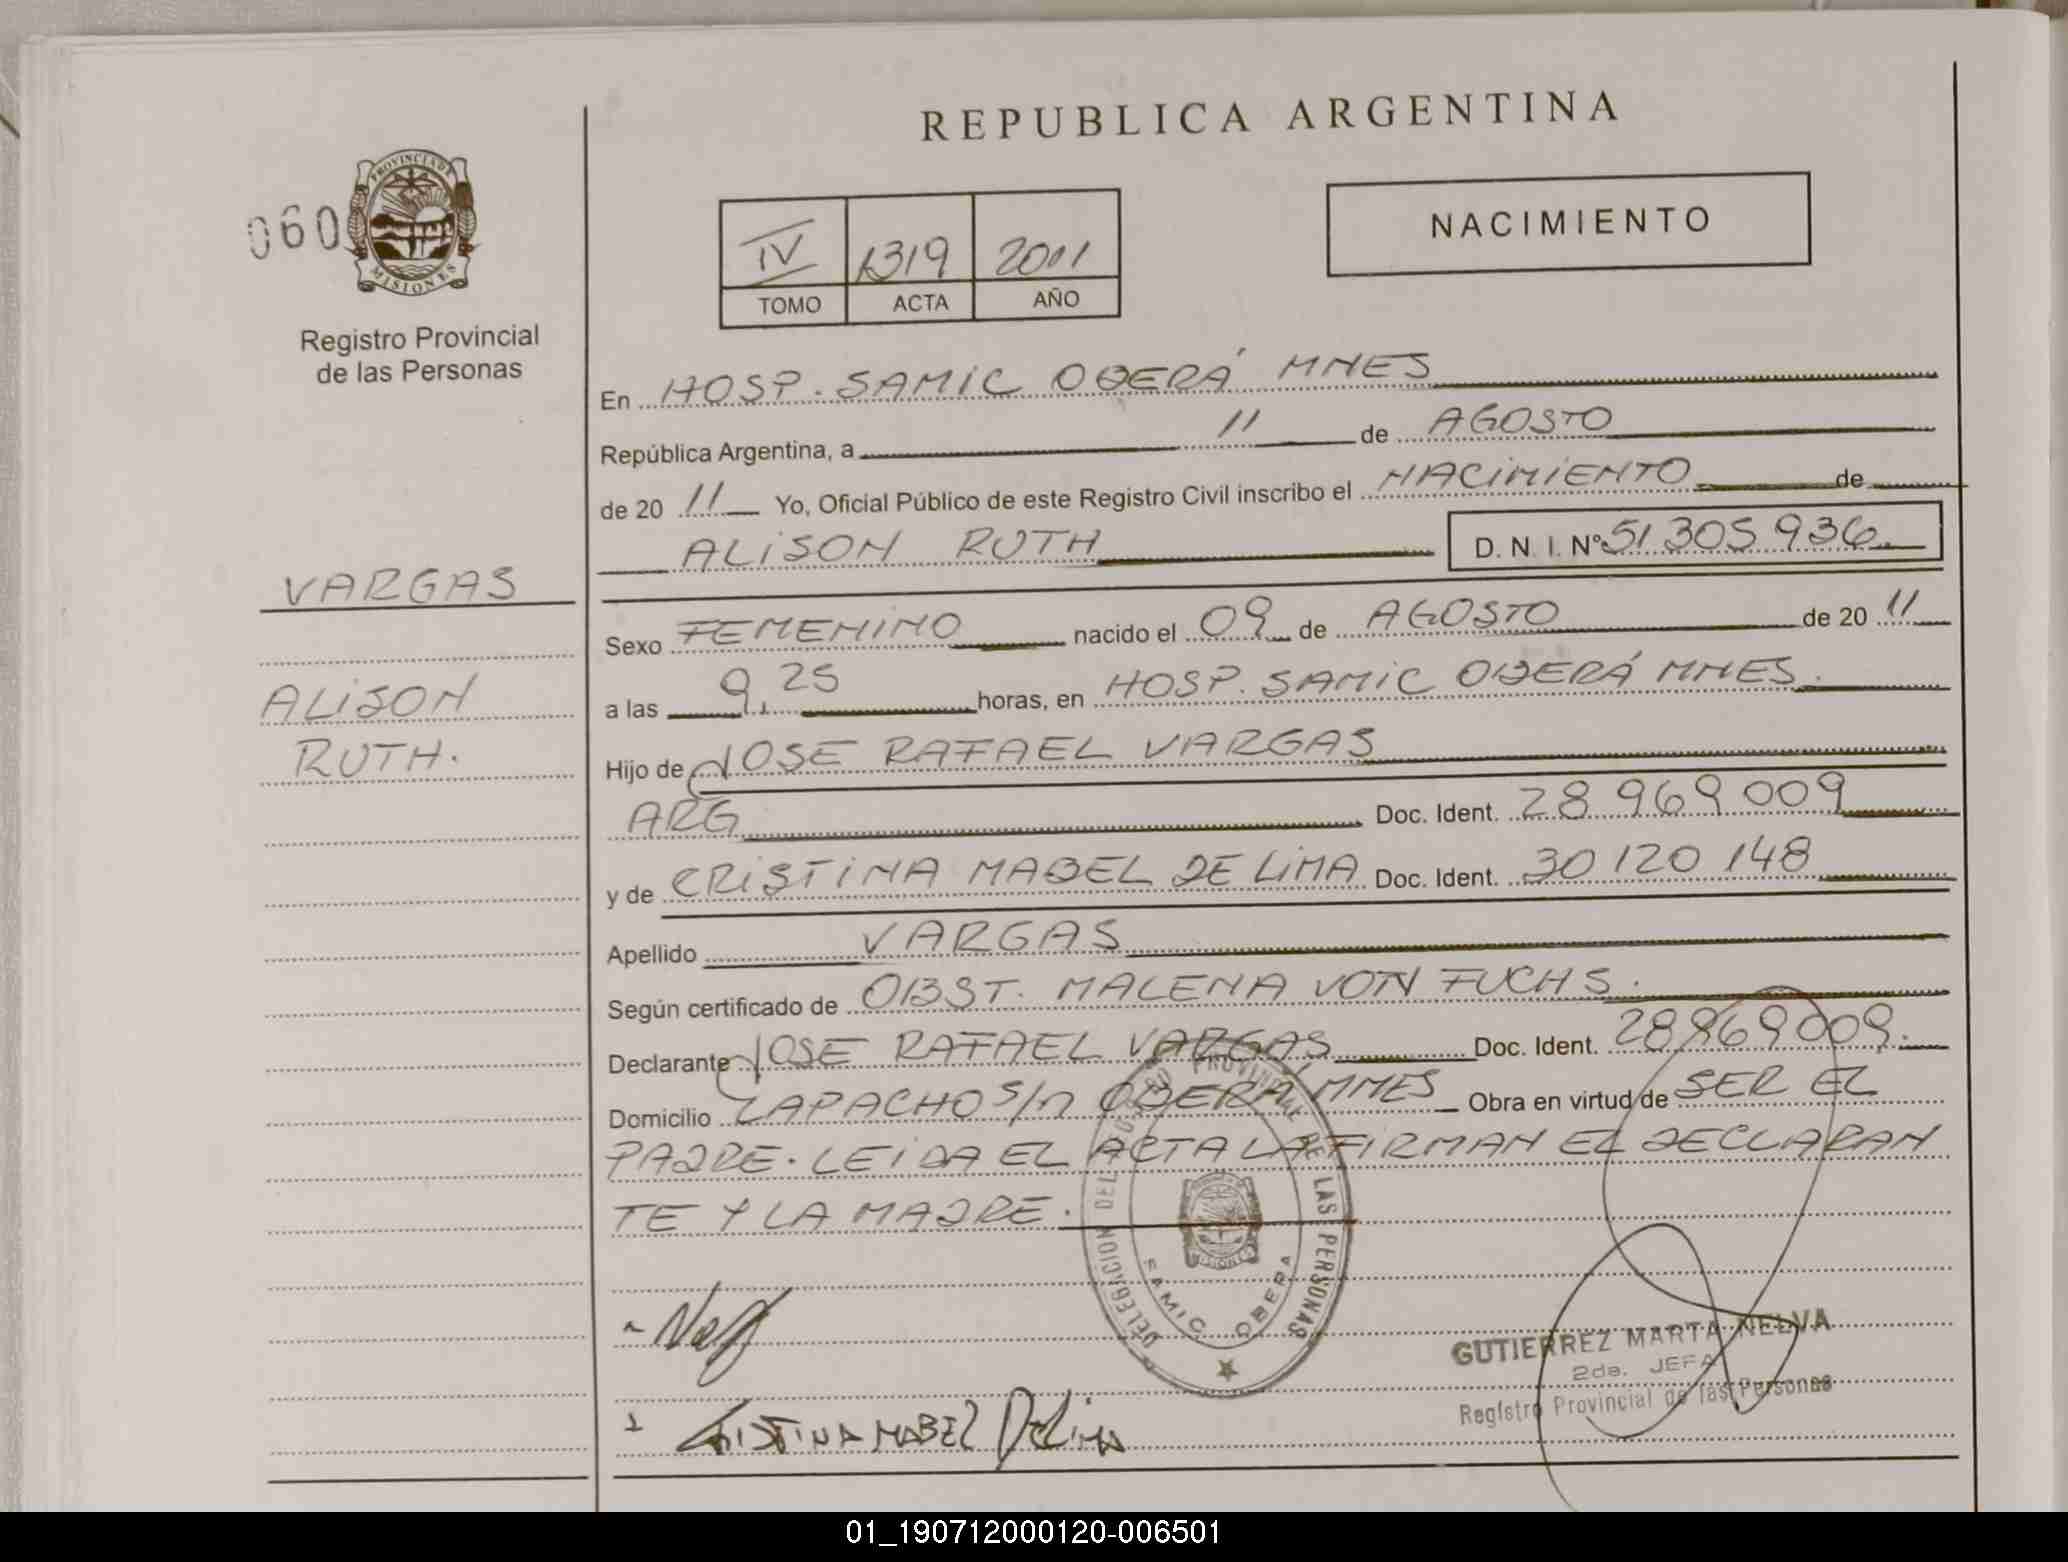 REPUBLICA ARGENTINA
060
PROVINCIA DE
MISIONES
Registro Provincial
de las Personas
IV 1319 2011
TOMO ACTA AÑO
NACIMIENTO
En HOSP. SAMIC OBERÁ MNES
República Argentina, a 11 de AGOSTO
de 20 11 Yo, Oficial Público de este Registro Civil inscribo el NACIMIENTO de
ALISON RUTH D. N. I. Nº 51 305 936.
VARGAS
ALISON
RUTH.
Sexo FEMENINO nacido el 09 de AGOSTO de 20 11
a las 9,25 horas, en HOSP. SAMIC OBERÁ MNES.
Hijo de JOSE RAFAEL VARGAS
ARG Doc. Ident. 28 969 009
y de CRISTINA MABEL DE LIMA Doc. Ident. 30 120 148
Apellido VARGAS
Según certificado de OBST. MALENA VON FUCHS.
Declarante JOSE RAFAEL VARGAS Doc. Ident. 28969009.
Domicilio LAPACHO S/n OBERÁ MNES Obra en virtud de SER EL
PADRE. LEIDA EL ACTA LA FIRMAN EL DECLARAN
TE Y LA MADRE.
DELEGACION DEL PROVINCIAL DE LAS PERSONAS
SAMIC OBERA
MISIONES
GUTIERREZ MARTA NELVA
2da. JEFA
Registro Provincial de las Personas
CRISTINA MABEL DeLima
01_190712000120-006501